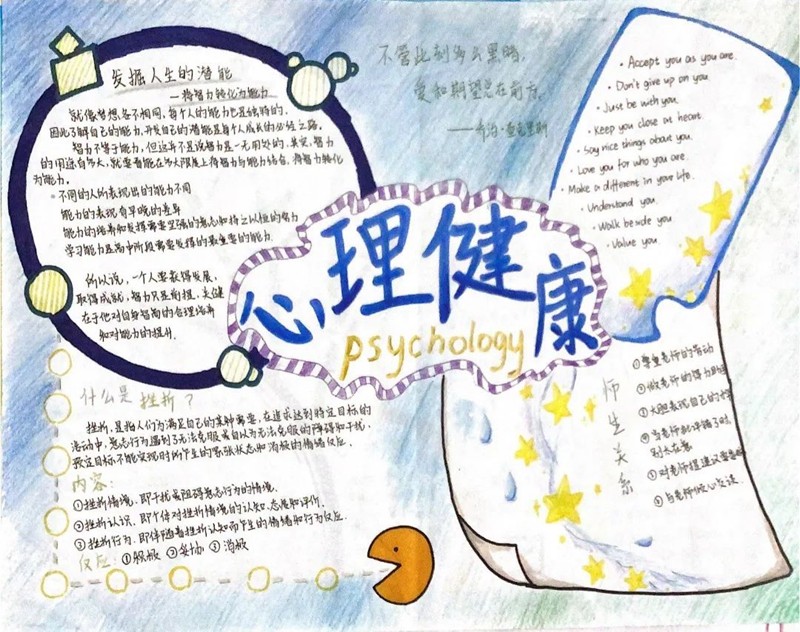 发掘人生的潜能
—将智力转化为能力
就像梦想各不相同，每个人的能力也是独特的，
因此了解自己的能力，开发自己的潜能是每个人成长的必经之路。
智力不等于能力，但这并不是说智力是一无用处的，其实，智力
的用途有多大，就要看能在多大限度上将智力与能力结合，将智力转化
为能力。
不同的人所表现出的能力不同
能力的表现有早晚的差异
能力的培养和发挥需要坚强的意志和持之以恒的努力
学习能力是高中阶段需要发挥的最重要的能力.
所以说，一个人要获得发展，
取得成就，智力只是前提，关键
在于他对自身智商的合理培养
和对能力的提升.
不管此刻多么黑暗，
爱和期望总在前方。
Accept you as you are.
Don't give up on you
Just be with you.
Keep you close at heart.
Say nice things about you.
Love you for who you are.
Make a different in your life.
Understand you.
Walk beside you
Value you.
心理健康
psychology
什么是挫折？
挫折，是指人们为满足自己的某种需要，在追求达到特定目标的
活动中，意志行为遇到了无法克服或自以为无法克服的障碍和干扰，
预定目标不能实现时所产生的紧张状态和消极的情绪反应。
内容：
①挫折情境，即干扰或阻碍意志行为的情境.
②挫折认识，即个体对挫折情境的认知、态度和评价.
③挫折行为，即伴随着挫折认知而产生的情绪和行为反应.
反应：①积极 ②妥协 ③消极
师生关系
①尊重老师的劳动
②做老师的得力助
③大胆表现自己的
④当老师批评错了时，
别太在意
⑤对老师提建议要委婉
⑥与老师倾心交谈.